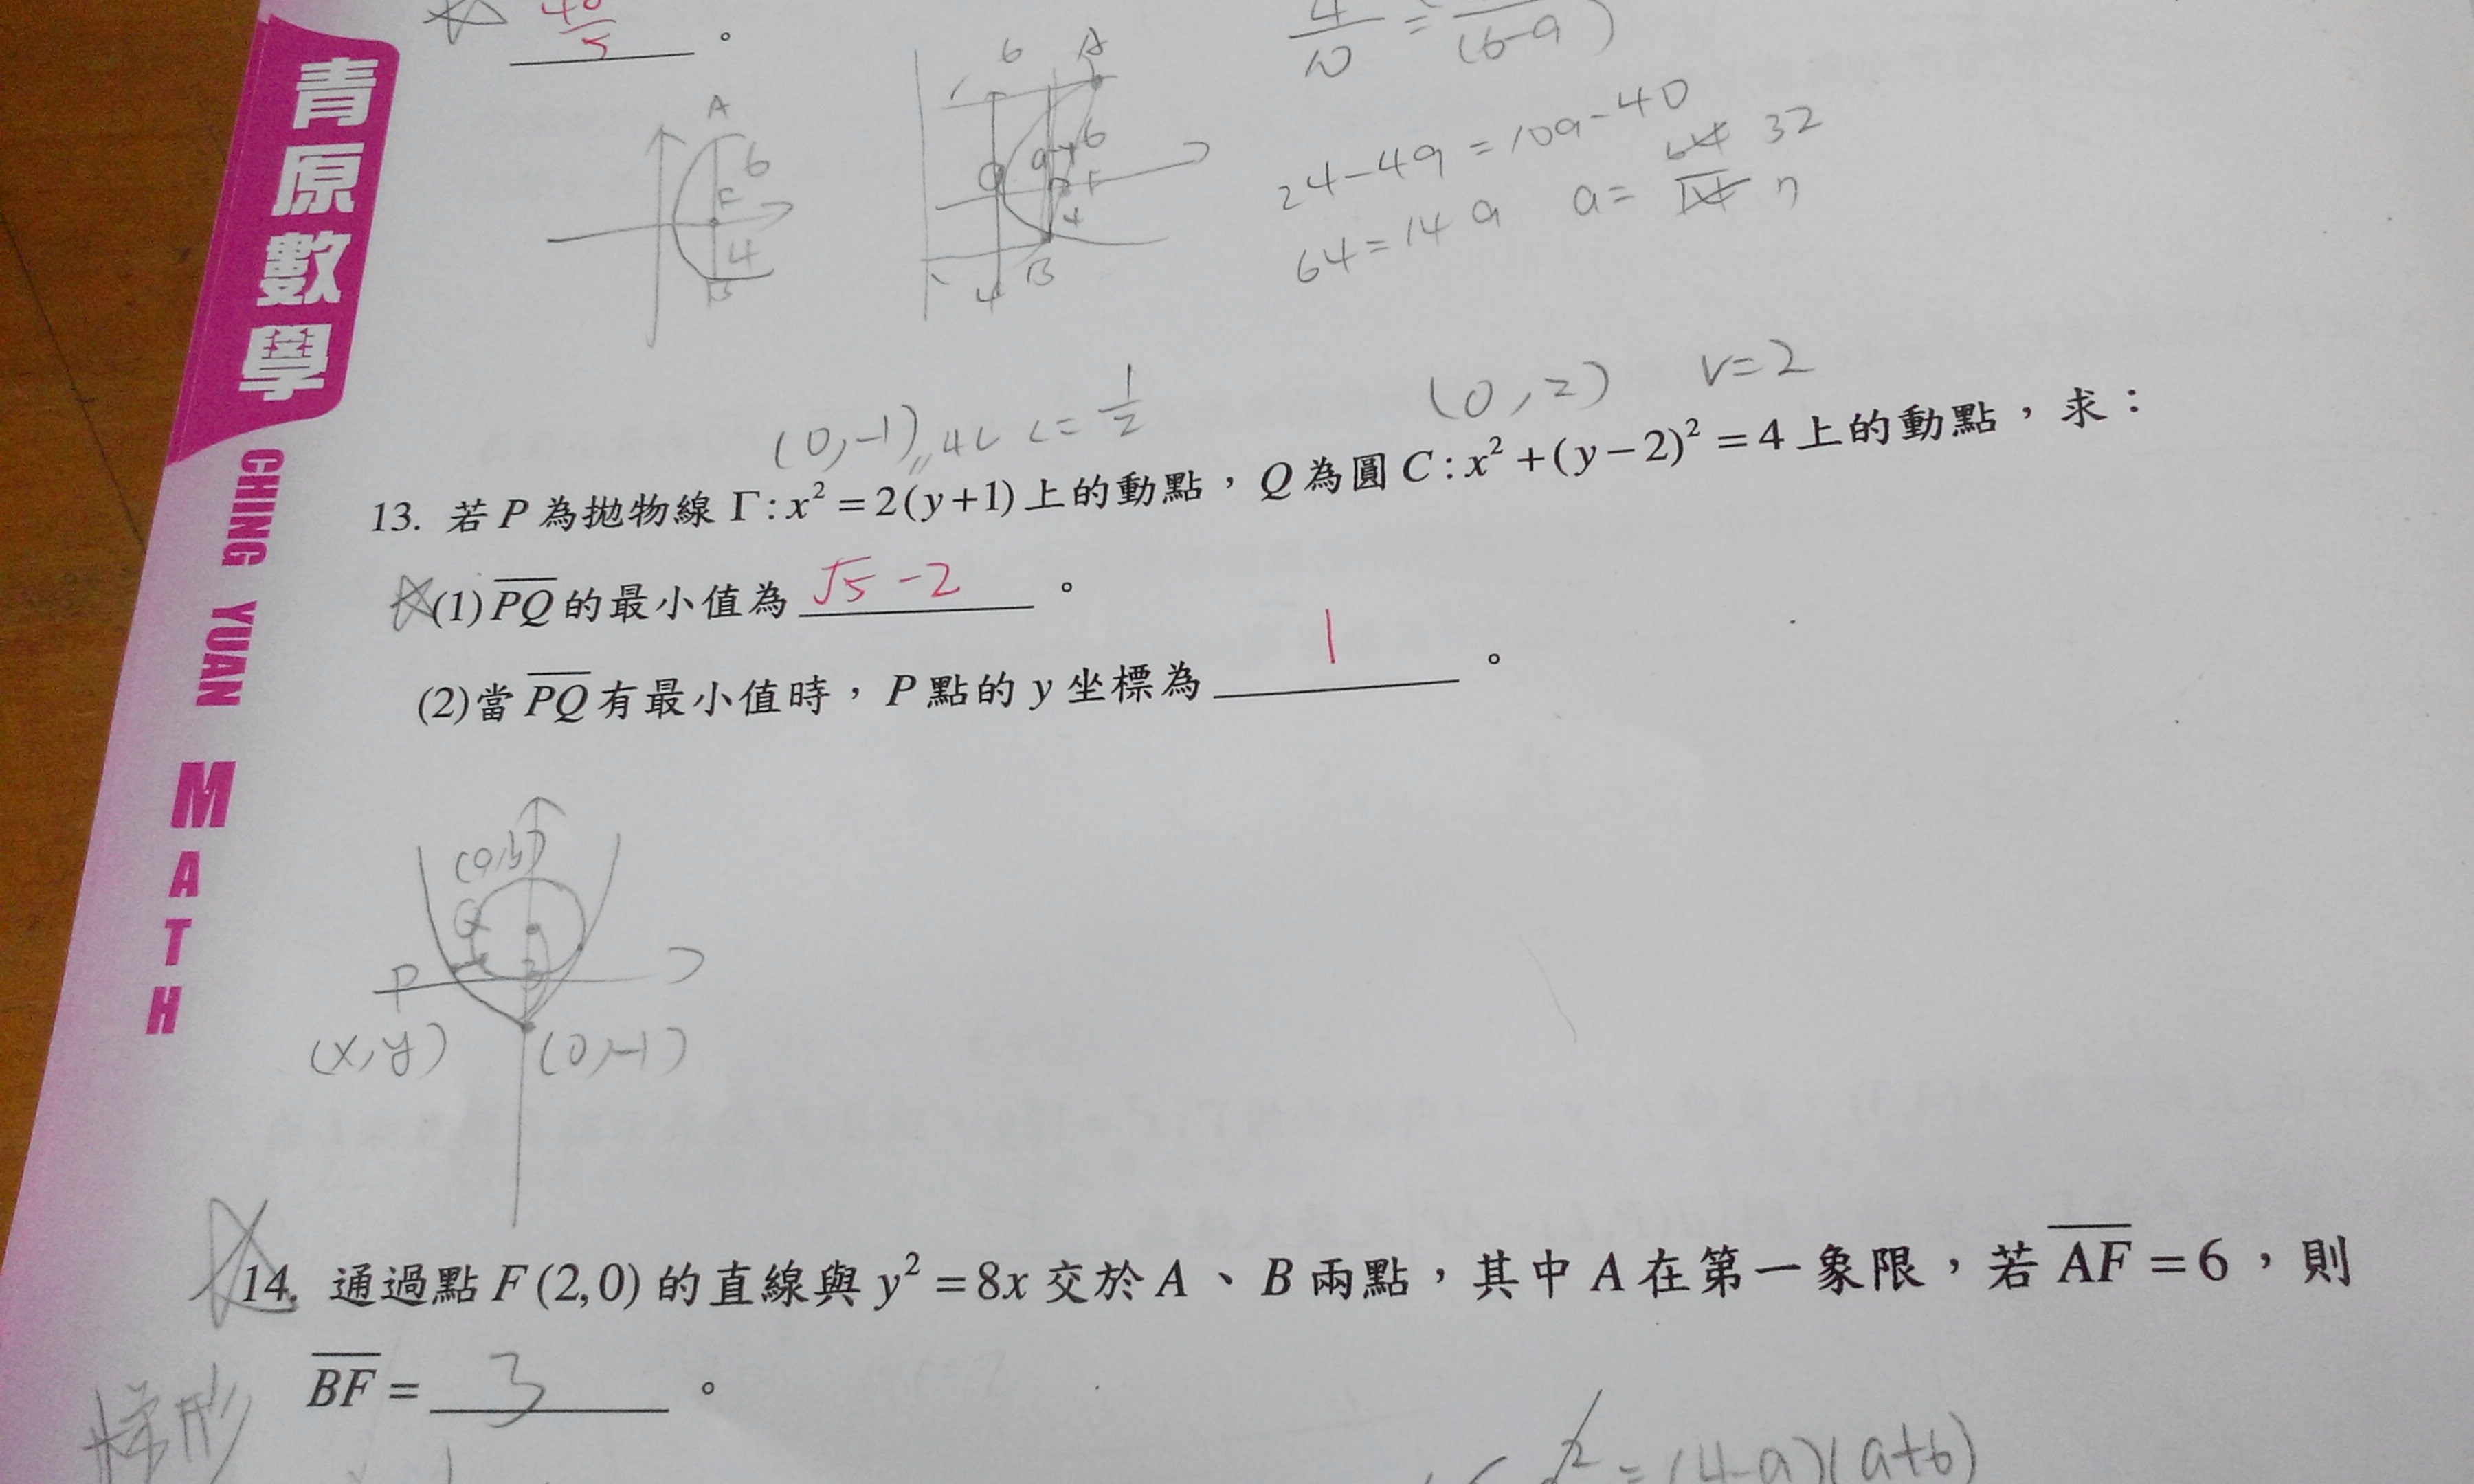 青原數學
CHING YUAN MATH
6 A
A
6
F
4
B
6
4
B
4/10 = /(6-a)
24-4a=10a-40
64=14a a= 32
(0,-1) 4c c=1/2
(0,2) r=2
13. 若 P 為拋物線 Γ:x²=2(y+1)上的動點，Q 為圓 C:x²+(y-2)²=4上的動點，求：
(1)PQ的最小值為 √5-2 。
(2)當 PQ 有最小值時，P 點的 y 坐標為 1 。
Q
3
P
(x,y) (0,-1)
14. 通過點 F(2,0)的直線與 y²=8x 交於 A 、 B 兩點，其中 A 在第一象限，若 AF=6，則
BF= 3 。
梯形
=(4-a)(a+6)